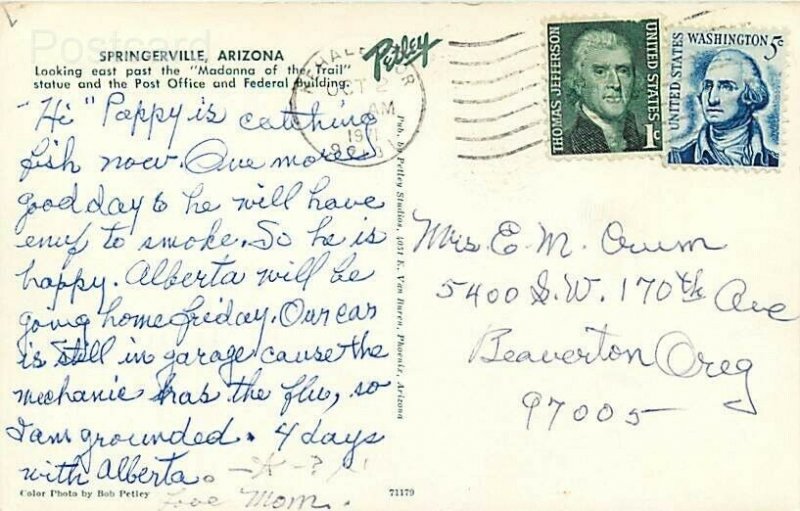 Postcard
SPRINGERVILLE, ARIZONA
Looking east past the "Madonna of the Trail"
statue and the Post Office and Federal building.
Petley
OCT 2
AM
1971
THOMAS JEFFERSON
UNITED STATES
1c
UNITED STATES
WASHINGTON 5c
"Hi" Poppy is catching
fish now. One more
good day & he will have
enuf to smoke. So he is
happy. Alberta will be
going home friday. Our car
is still in garage cause the
mechanic has the flu, so
I am grounded. 4 days
with Alberta.
Love Mom.
Pub. by Petley Studios, 4051 E. Van Buren, Phoenix, Arizona
Mrs. E. M. Orum
5400 S.W. 170th Ave
Beaverton Oreg
97005
Color Photo by Bob Petley
71179